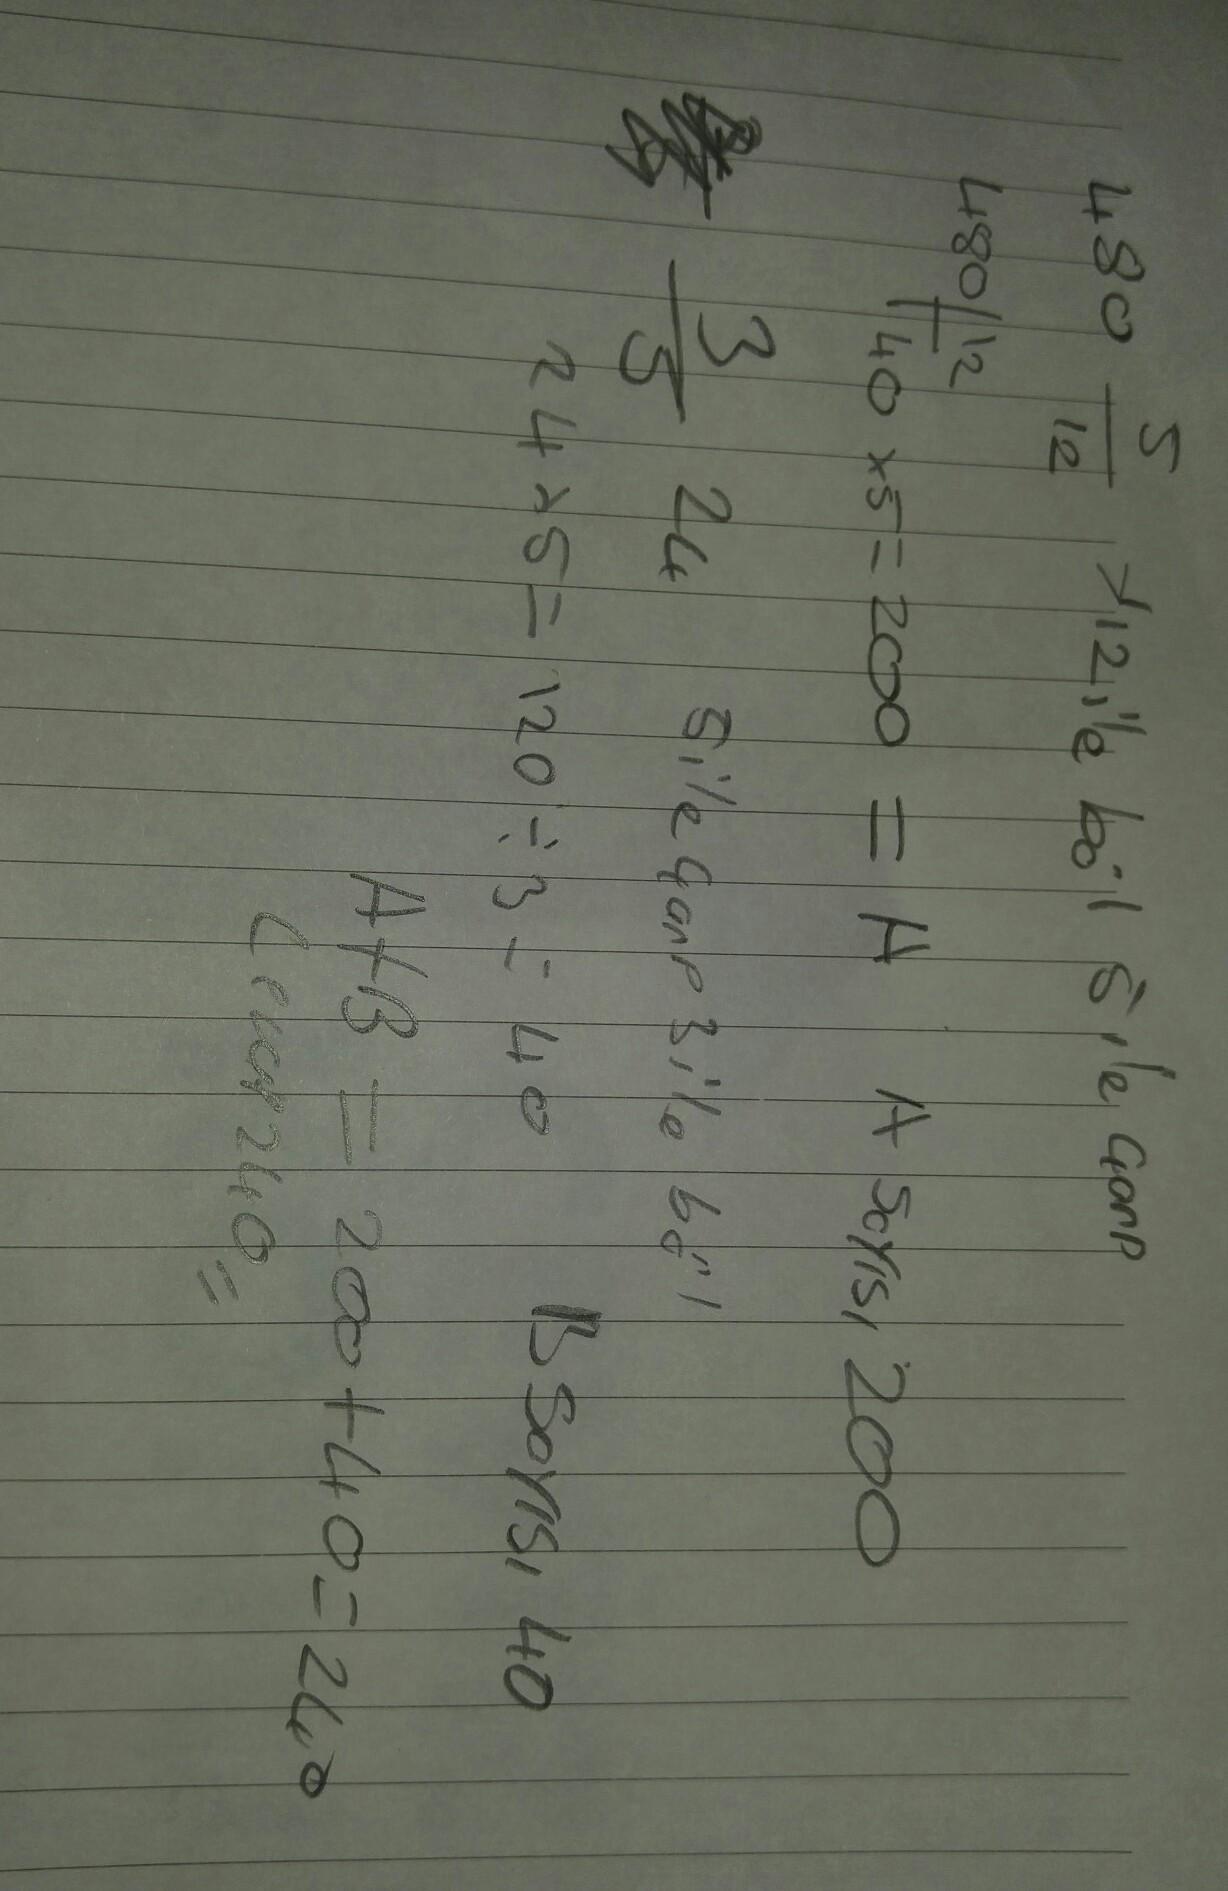 480 5/12 > 12 ile böl 5 ile çarp
480 | 12
40 x 5 = 200 = A A sayısı 200
3/5 24 5 ile çarp 3 ile böl
24 x 5 = 120 ÷ 3 = 40 B sayısı 40
A + B = 200 + 40 = 240
Cevap 240 =